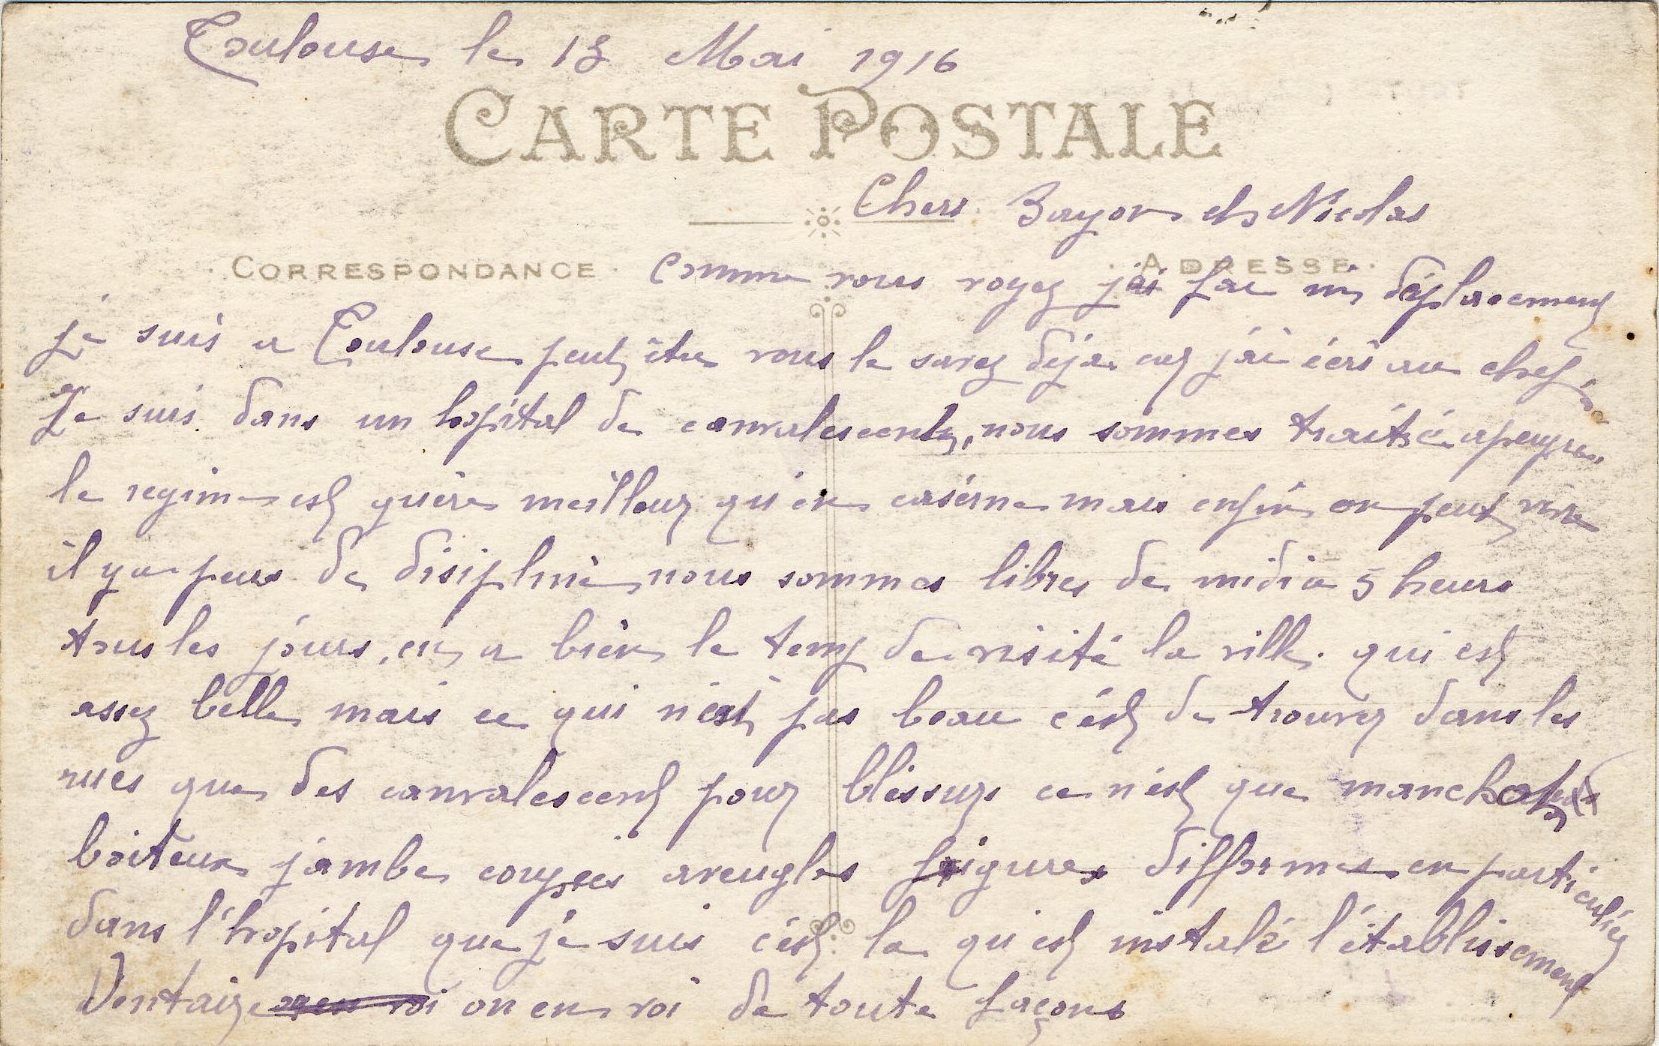 Toulouse le 13 Mai 1916
CARTE POSTALE
Chers Bayon et Nicolas
CORRESPONDANCE
ADRESSE
Comme vous voyez jai fai un déplacement
je suis a Toulouse peut être vous le savez déja car jai écri au chef.
Je suis dans un hopital de convalescents, nous sommes traité apeupres
le regime est guère meilleur qu'en caserne mais enfin on peut vivre
il y a peus de disipline nous sommes libres de midi a 5 heurs
tous les jours, on a bien le temp de visité la ville. qui est
assez belle mais ce qui n'est pas beau c'est de trouver dans les
rues que des convalescent pour blessurs ce n'est que manchots
boiteux jambe coupées aveugles figures difformes en particulier
dans l'hopital que je suis c'est la qu'est instalé l'établissement
Dentaire on en voi de toute façons